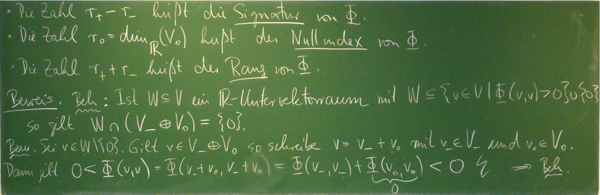 · Die Zahl r₊ - r₋ heißt die Signatur von Φ.
· Die Zahl r₀ = dim_ℝ(V₀) heißt der Nullindex von Φ.
· Die Zahl r₊ + r₋ heißt der Rang von Φ.
Beweis. Beh: Ist W ⊆ V ein ℝ-Untervektorraum mit W ⊆ {v ∈ V | Φ(v,v) > 0} ∪ {0}
so gilt W ∩ (V₋ ⊕ V₀) = {0}.
Bew. Sei v ∈ W \ {0}. Gilt v ∈ V₋ ⊕ V₀, so schreibe v = v₋ + v₀ mit v₋ ∈ V₋ und v₀ ∈ V₀.
Dann gilt 0 < Φ(v,v) = Φ(v₋ + v₀, v₋ + v₀) = Φ(v₋, v₋) + Φ(v₀, v₀) < 0 ↯ ⇒ Beh.
0